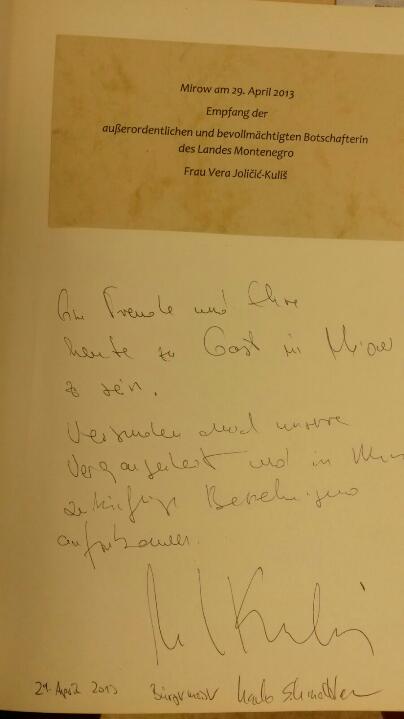 Mirow am 29. April 2013
Empfang der
außerordentlichen und bevollmächtigten Botschafterin
des Landes Montenegro
Frau Vera Joličić-Kuliš
Freude und Ehre
heute zu Gast in Mirow
zu sein.
Verbunden durch unsere
Vergangenheit und in
zukünftige Beziehungen
aufzubauen.
29. April 2013 Bürgermeister